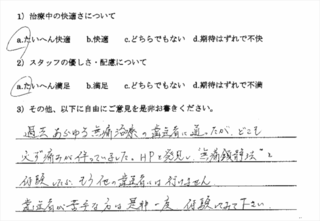 1) 治療中の快適さについて
a.たいへん快適 b.快適 c.どちらでもない d.期待はずれで不快
2) スタッフの優しさ・配慮について
a.たいへん満足 b.満足 c.どちらでもない d.期待はずれで不満
3) その他、以下に自由にご意見を是非お書きください。
過去あらゆる無痛治療の歯医者に通ったが、どこも
必ず痛みが伴っていました。HPを発見し"無痛麻酔法"を
体験したら、もう他の歯医者には行けません。
歯医者が苦手な方は是非一度体験してみて下さい。